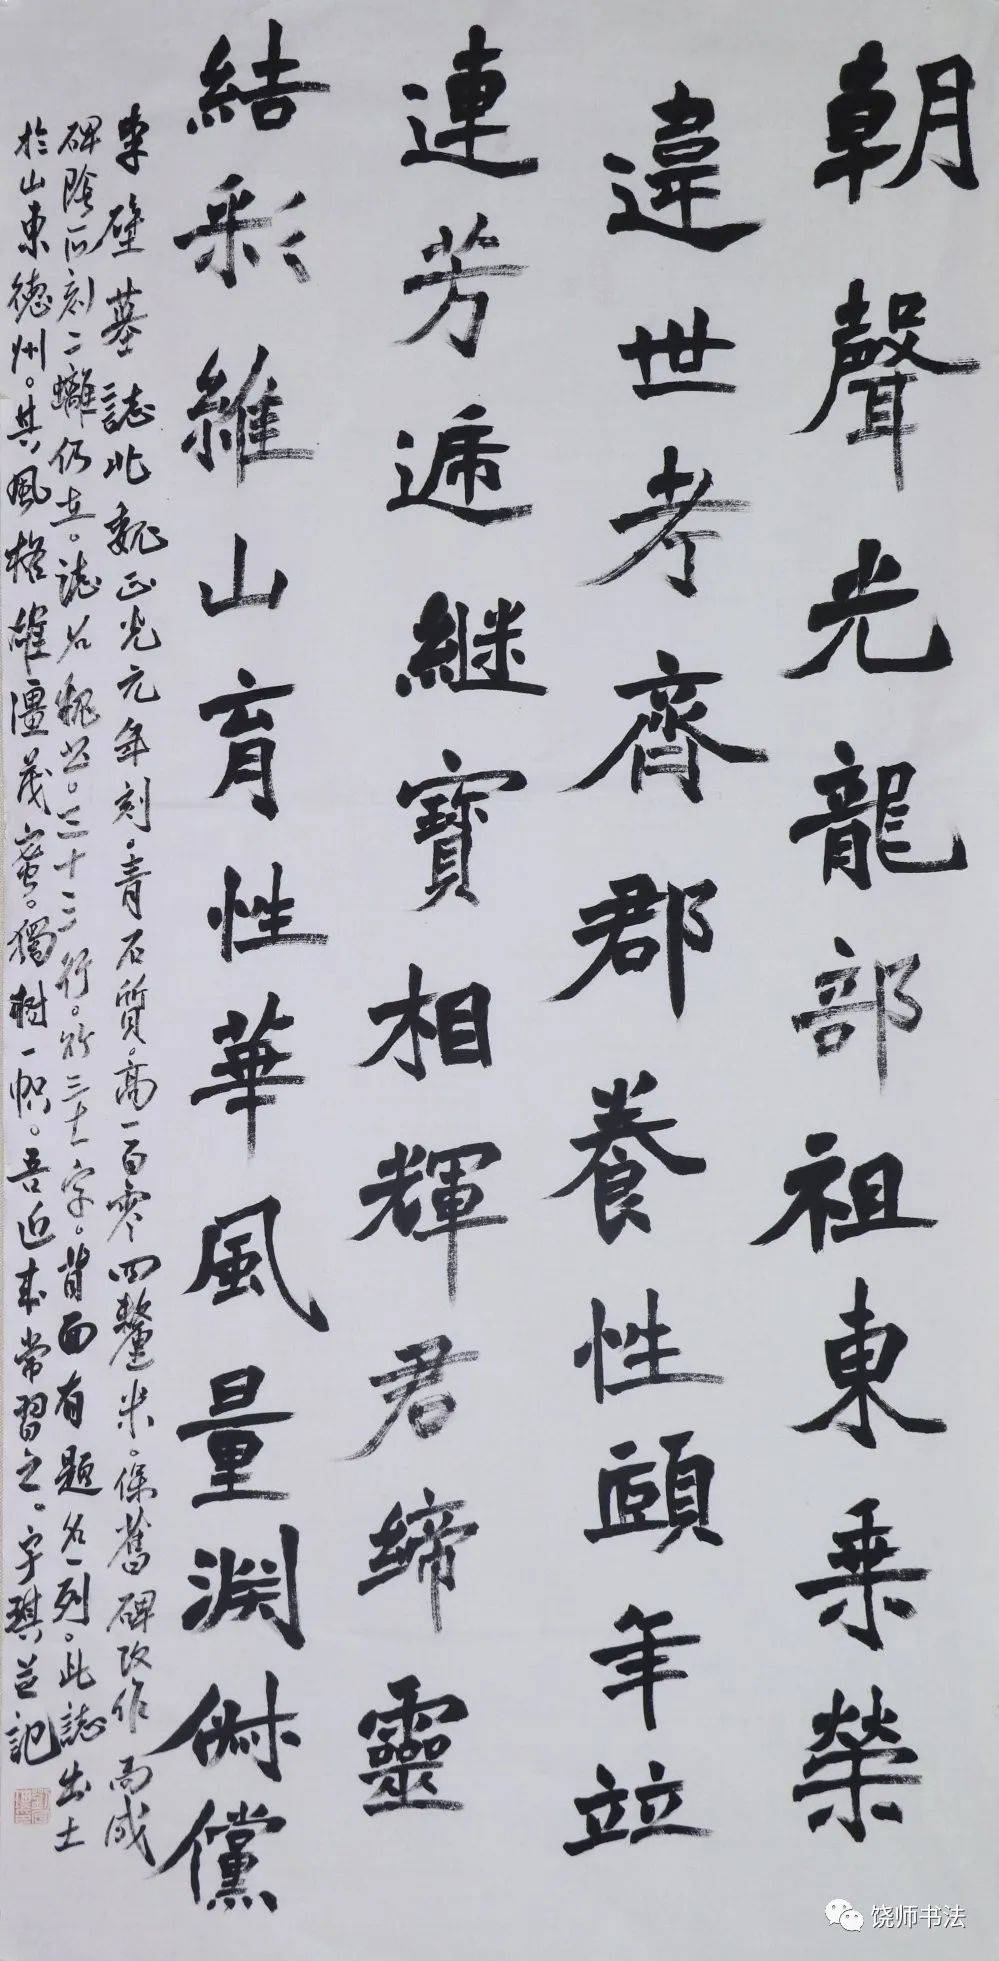 朝聲光龍部祖東秉榮
違世考齊郡養性頤年竝
連芳遞繼寶相輝君締靈
結彩維山育性華風量淵俶儻
李璧墓誌北魏正光元年刻青石質高一百零四釐米係舊碑改作而成
碑陰所刻二螭仍在誌石魏書三十三行行三十一字背面有題名一列此誌出土
於山東德州其風格雄強茂密獨樹一幟吾近來常習之宇琪並記
饶师书法